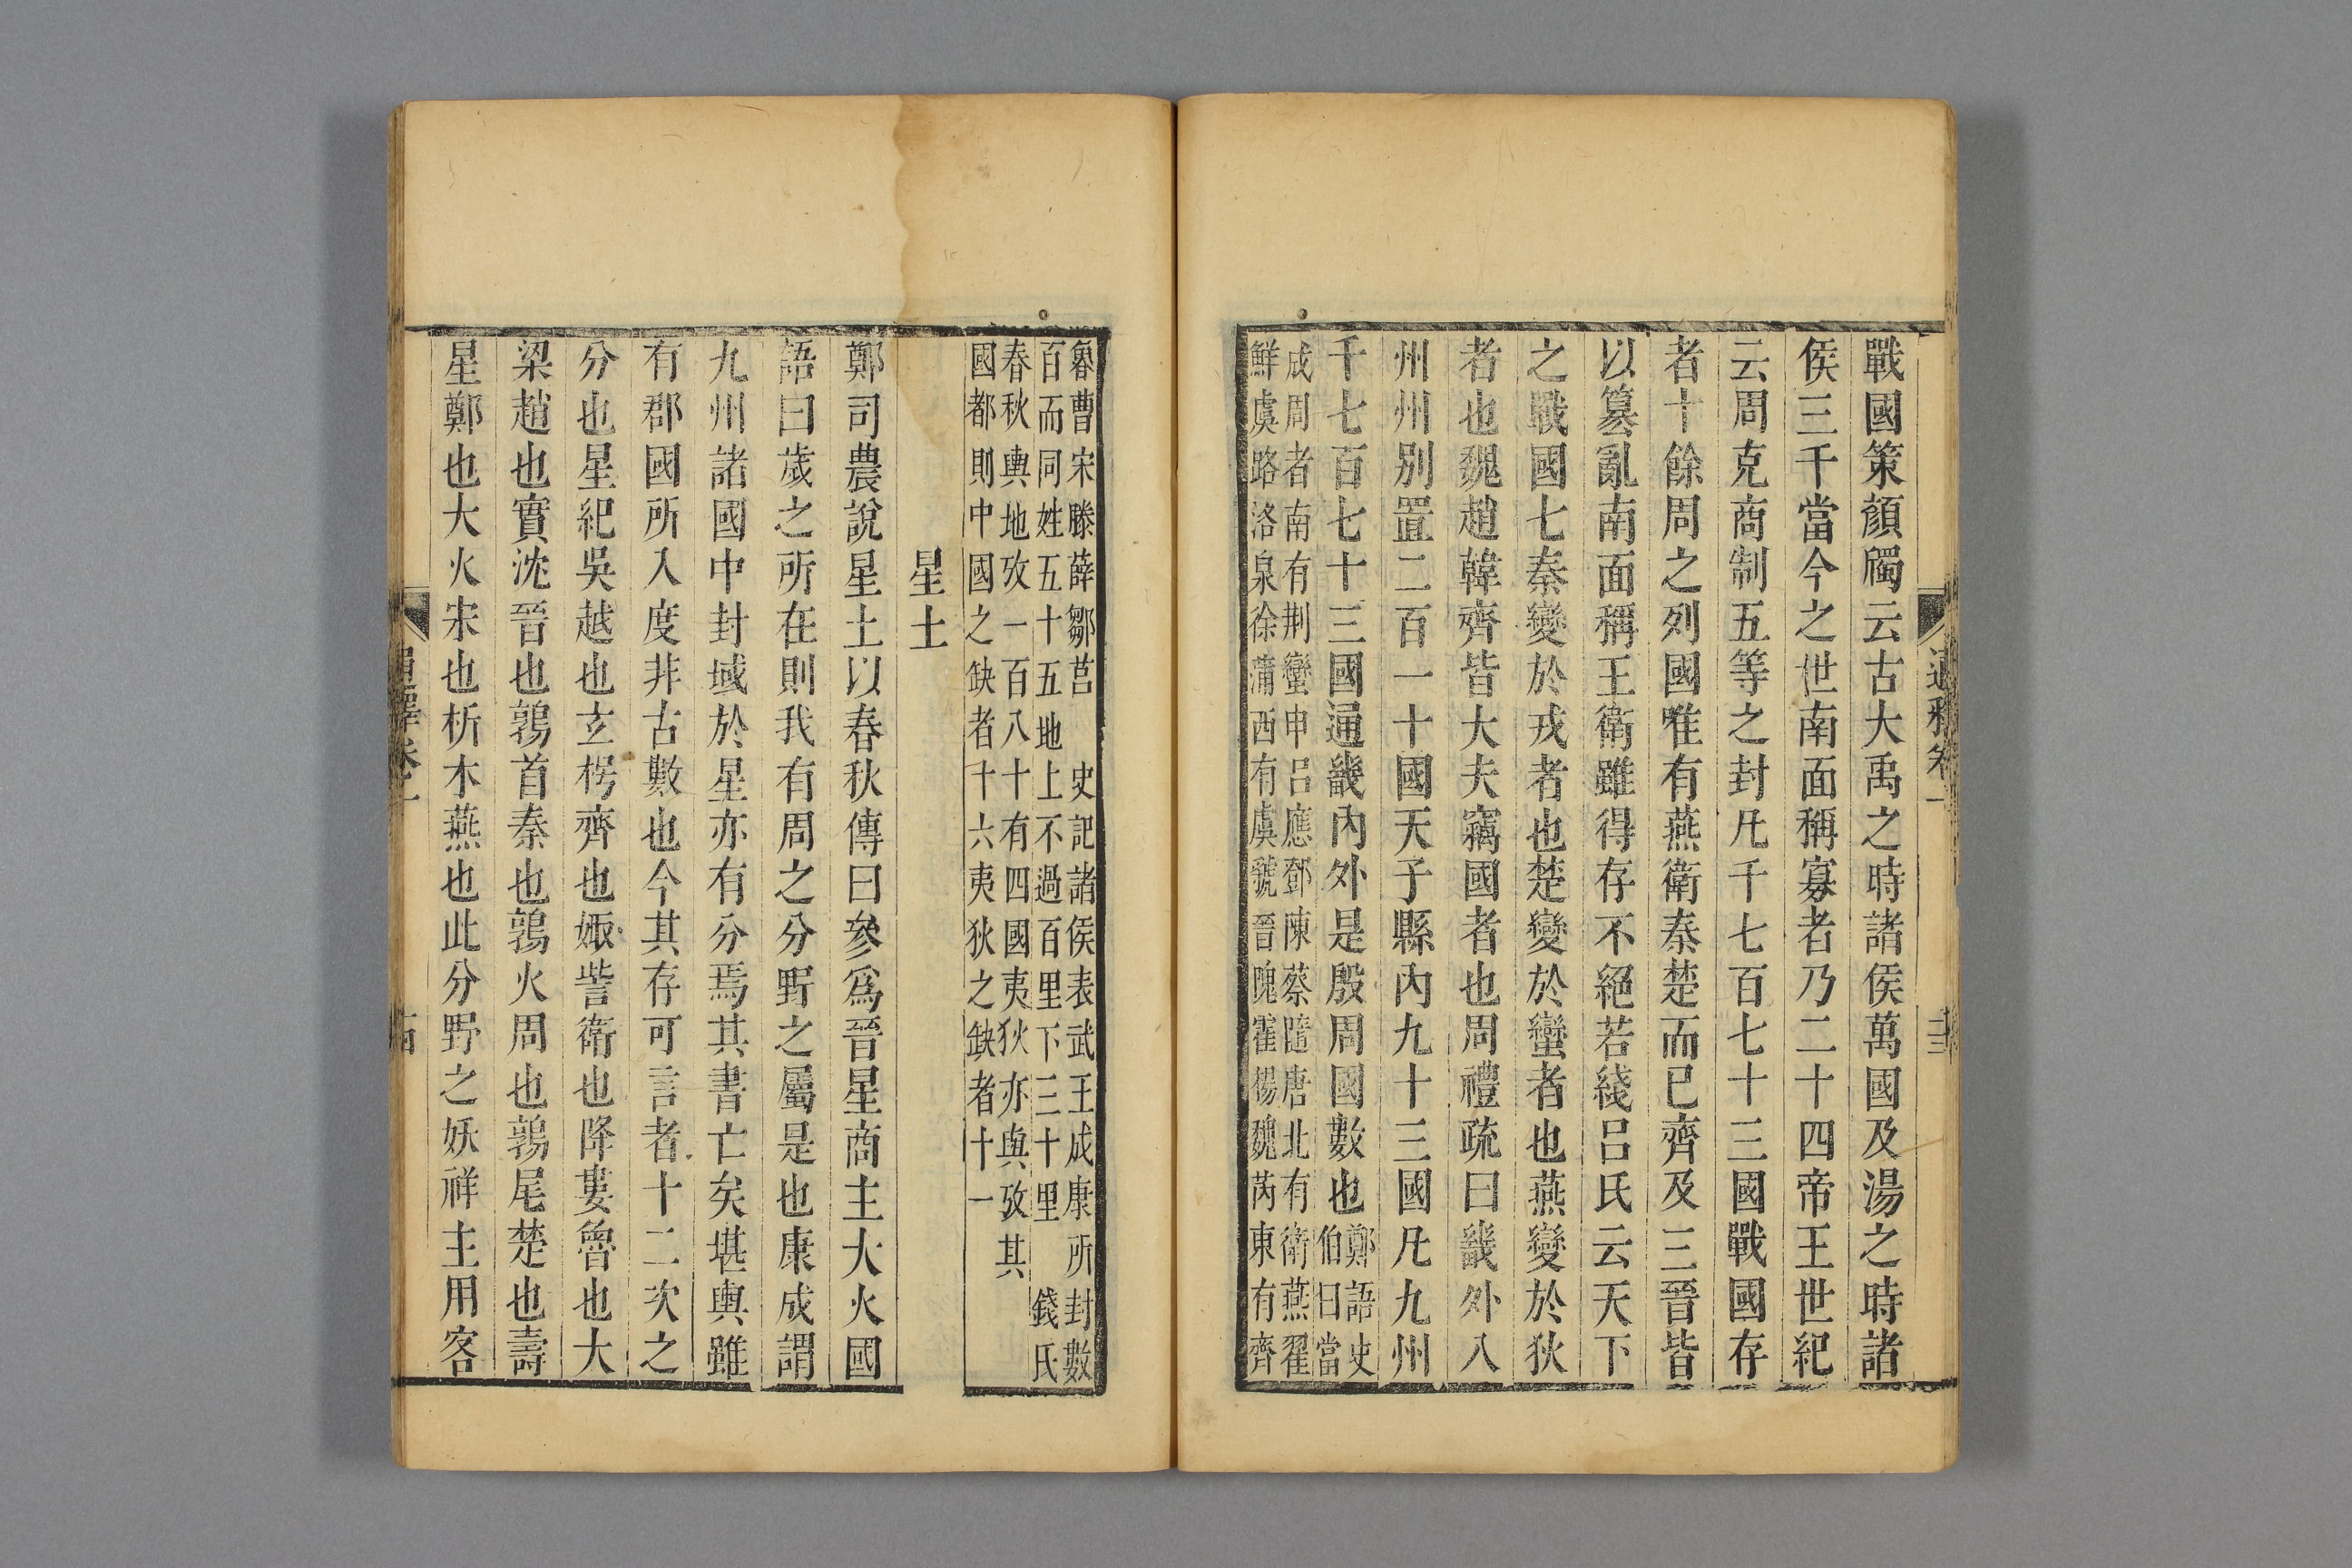 戰國策顏斶云古大禹之時諸侯萬國及湯之時諸
侯三千當今之世南面稱寡者乃二十四帝王世紀
云周克商制五等之封凡千七百七十三國戰國存
者十餘周之列國唯有燕衛秦楚而已齊及三晉皆
以篡亂南面稱王衛雖得存不絕若綫呂氏云天下
之戰國七秦變於戎者也楚變於蠻者也燕變於狄
者也魏趙韓齊皆大夫竊國者也周禮疏曰畿外八
州州別置二百一十國天子縣內九十三國凡九州
千七百七十三國通畿內外是殷周國數也
鄭語史
伯曰當
成周者南有荆蠻申呂應鄧陳蔡隨唐北有衛燕翟
鮮虞路洛泉徐蒲西有虞虢晉隗霍楊魏芮東有齊
魯曹宋滕薛鄒莒 史記諸侯表武王成康所封數
百而同姓五十五地上不過百里下三十里 錢氏
春秋輿地攷一百八十有四國夷狄亦與攷其
國都則中國之缺者十六夷狄之缺者十一
星土
鄭司農說星土以春秋傳曰參爲晉星商主大火國
語曰歲之所在則我有周之分野之屬是也康成謂
九州諸國中封域於星亦有分焉其書亡矣堪輿雖
有郡國所入度非古數也今其存可言者十二次之
分也星紀吳越也玄枵齊也娵訾衛也降婁魯也大
梁趙也實沈晉也鶉首秦也鶉火周也鶉尾楚也壽
星鄭也大火宋也析木燕也此分野之妖祥主用客